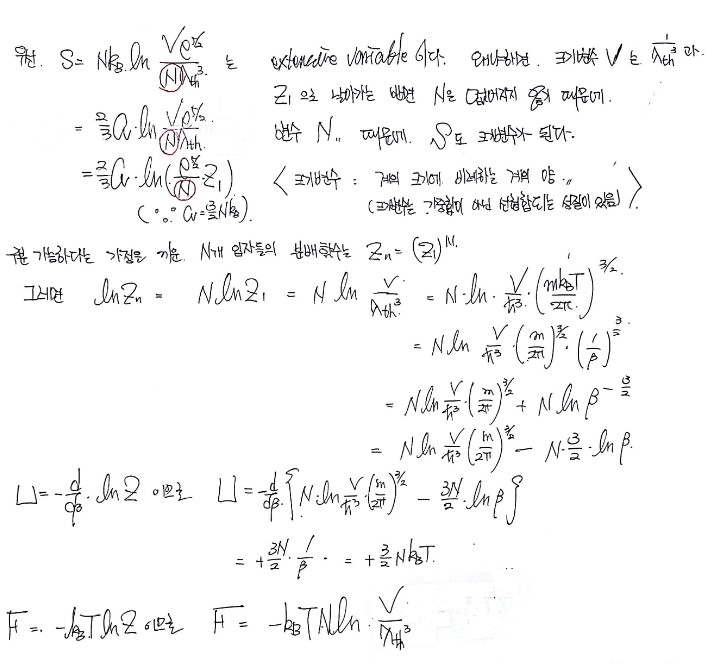 우선. S = Nk_B ln Ve^{5/2}/(Nλ_th^3) 는 extensive variable 이다. 왜냐하면. 크기변수 V 는 1/λ_th^3 과.
= 2/3 C_V · ln Ve^{5/2}/(Nλ_th^3) Z_1 으로 넘어가는 반면 N은 없어지지 않기 때문에.
= 2/3 C_V · ln(e^{5/2}/N · Z_1) 변수 N,, 때문에. S도 크기변수가 된다.
(∵ C_V = 3/2 Nk_B). < 크기변수 : 계의 크기에 비례하는 계의 양.,
(크기변수는 가중합이 아닌 선형합되는 성질이 있음) >
구분 가능하다는 가정을 하면. N개 입자들의 분배함수는 Z_n = (Z_1)^N.
그러면 ln Z_n = N ln Z_1 = N ln V/λ_th^3 = N · ln · V/ħ^3 · (mk_BT/2π)^{3/2}.
= N ln V/ħ^3 · (m/2π)^{3/2} · (1/β)^{3/2}
= N ln V/ħ^3 · (m/2π)^{3/2} + N ln β^{-3/2}
= N ln V/ħ^3 (m/2π)^{3/2} - N · 3/2 · ln β.
U = -d/dβ · ln Z 이므로 U = -d/dβ · {N · ln V/ħ^3 · (m/2π)^{3/2} - 3N/2 · ln β}
= +3N/2 · 1/β · = +3/2 Nk_BT.
F = · -k_BT ln Z 이므로 F = -k_BT N ln · V/λ_th^3